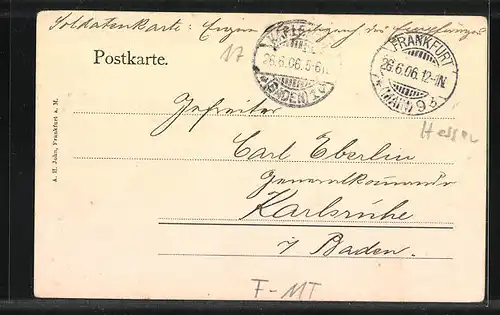 Soldatenkarte: Eigene Angelegenheit des Empfängers
Postkarte.
17
26.6.06.5-6N.
(BADEN)
FRANKFURT
26.6.06.12-1N.
*(MAIN) 9
Hessen
Gefreiter
Carl Eberlin
Generalkommando
Karlsruhe
i/ Baden.
F-MT
A. H. John, Frankfurt a. M.